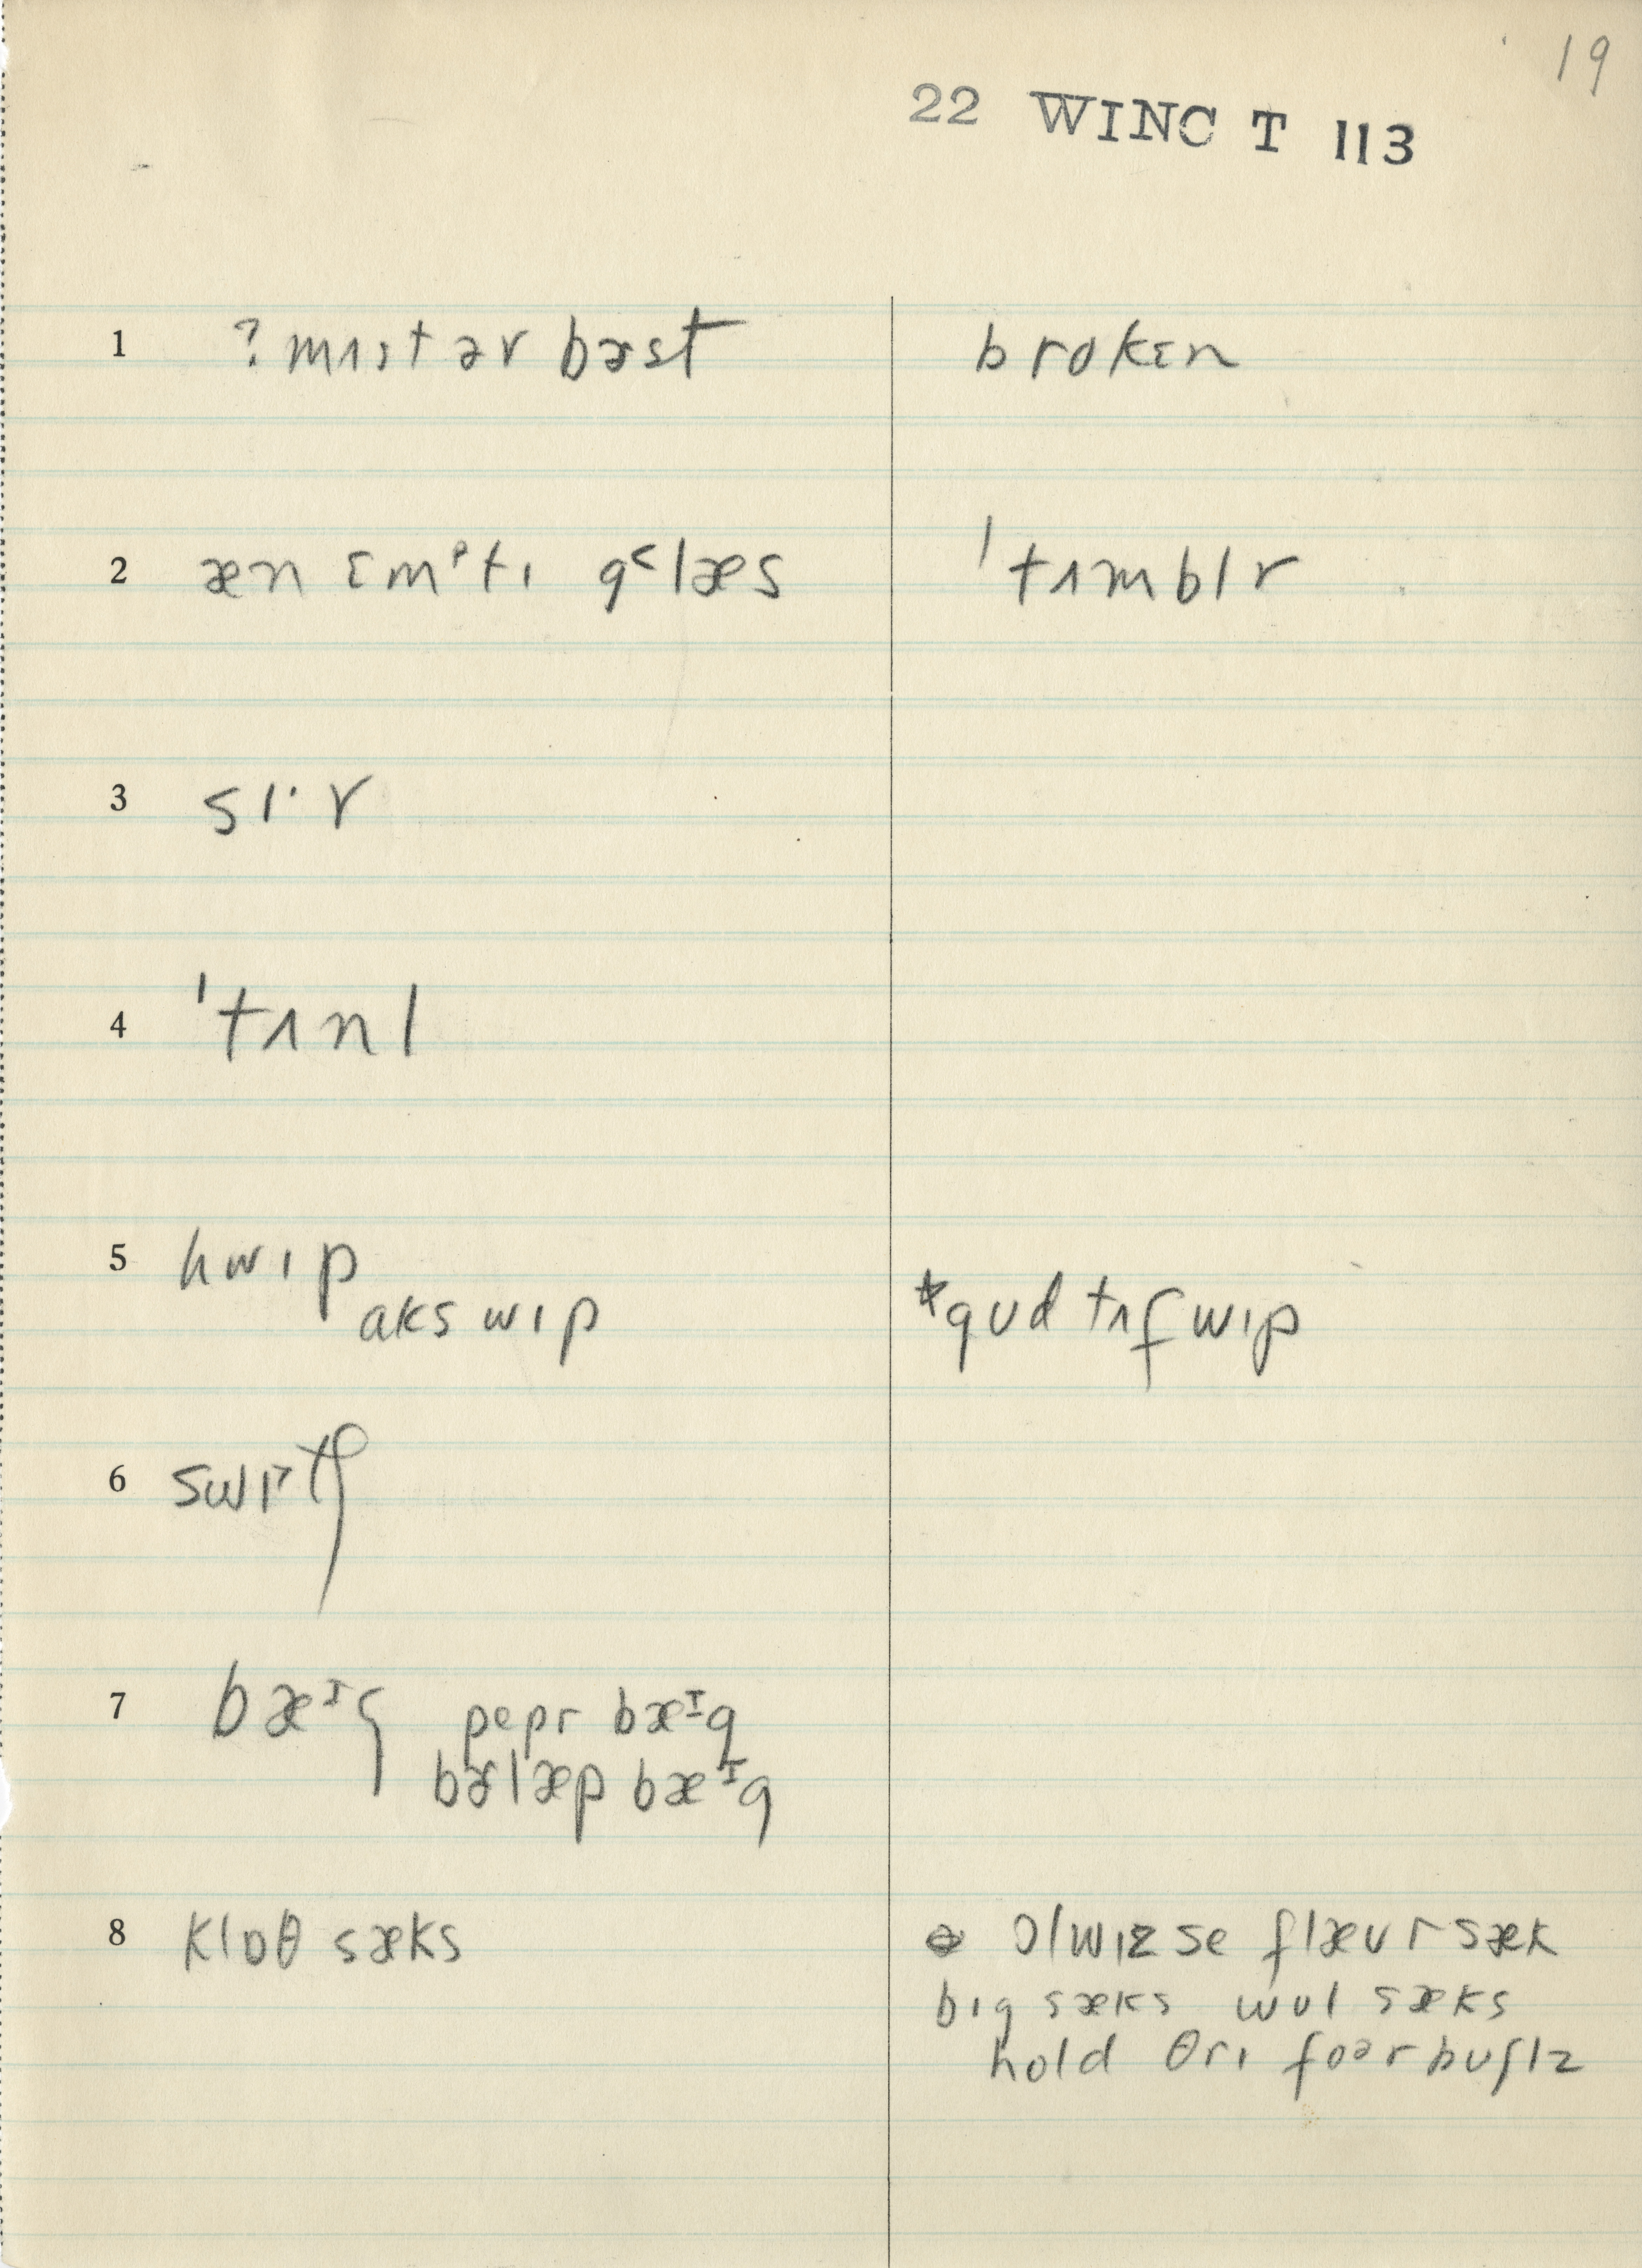 19
22 WINC T 113
1 ? mʌst əv bəst broken
2 æn ɛmᵖtɪ g˂læs ˈtʌmblr
3 sɪ· r
4 ˈtʌnl
5 hwɪp
aks wɪp *gud tʌf wɪp
6
7 bæᴵg pepr bæᴵg
bɚlæp bæᴵg
8 klɒθ sæks ɔlwɪz se flæur sæk
bɪg sæks wul sæks
hold θrɪ foər buʃlz